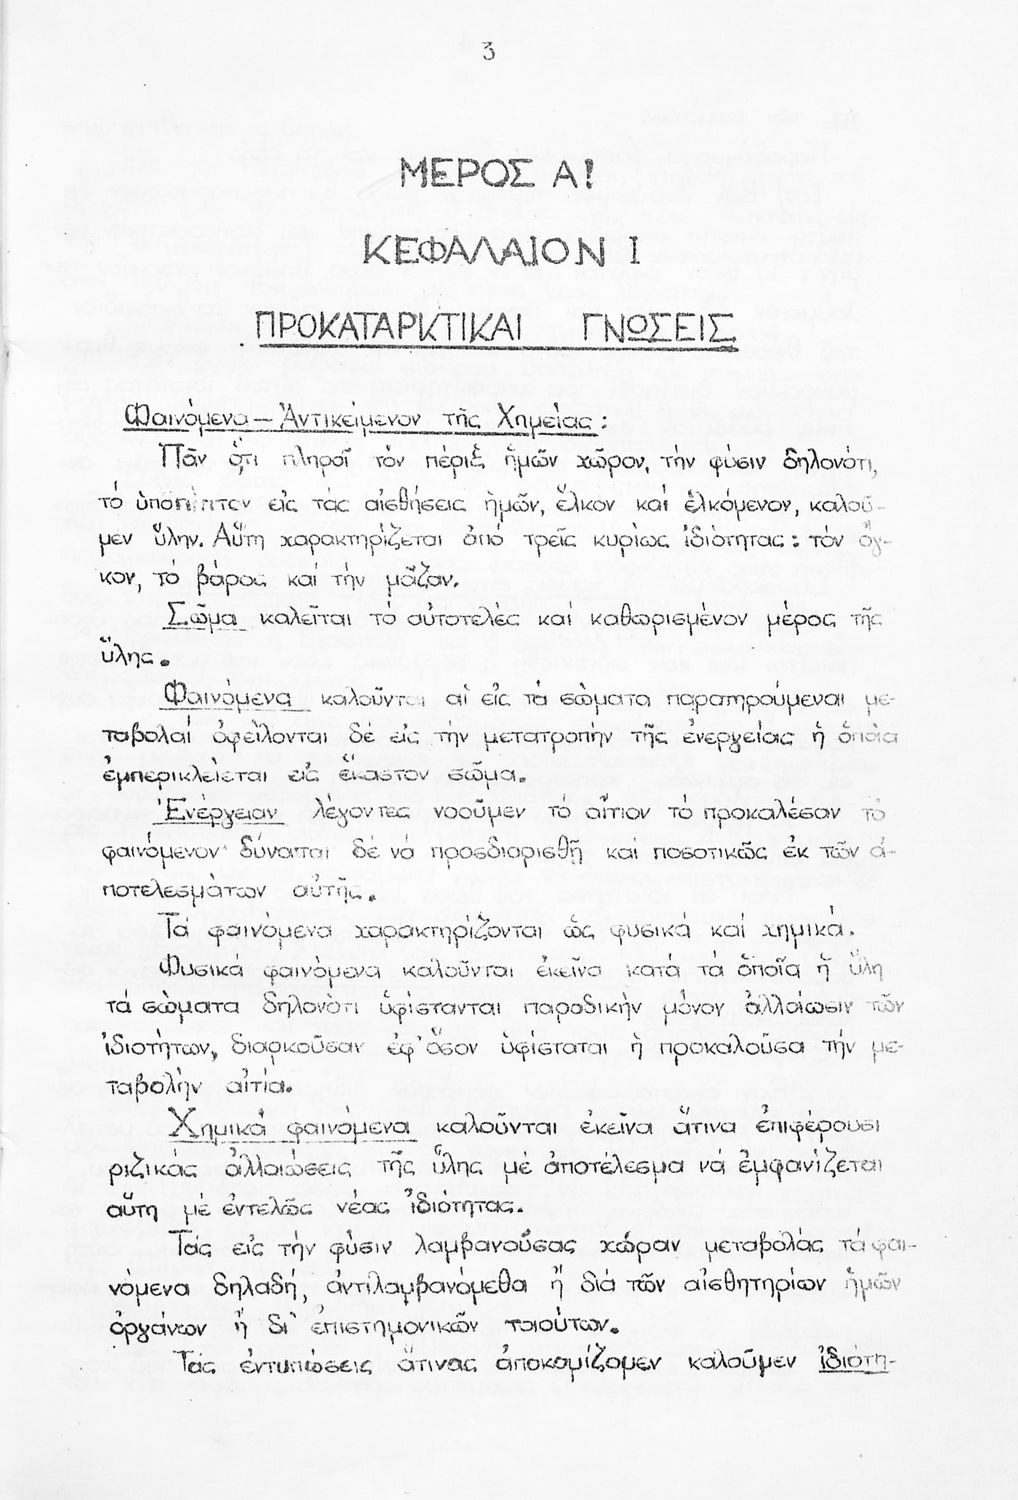 3
ΜΕΡΟΣ Α!
ΚΕΦΑΛΑΙΟΝ Ι
ΠΡΟΚΑΤΑΡΚΤΙΚΑΙ ΓΝΩΣΕΙΣ
Φαινόμενα – Ἀντικείμενον τῆς Χημείας:
Πᾶν ὅτι πληροῖ τόν πέριξ ἡμῶν χῶρον, τήν φύσιν δηλονότι,
τό ὑποπῖπτον εἰς τάς αἰσθήσεις ἡμῶν, ἕλκον καί ἑλκόμενον, καλοῦ-
μεν ὕλην. Αὕτη χαρακτηρίζεται ἀπό τρεῖς κυρίως ἰδιότητας: τόν ὄγ-
κον, τό βάρος καί τήν μᾶζαν.
Σῶμα καλεῖται τό αὐτοτελές καί καθωρισμένον μέρος τῆς
ὕλης.
Φαινόμενα καλοῦνται αἱ εἰς τά σώματα παρατηρούμεναι με-
ταβολαί ὀφείλονται δέ εἰς τήν μετατροπήν τῆς ἐνεργείας ἡ ὁποία
ἐμπερικλείεται εἰς ἕκαστον σῶμα.
Ἐνέργειαν λέγοντες νοοῦμεν τό αἴτιον τό προκαλέσαν τό
φαινόμενον· δύναται δέ νά προσδιορισθῇ καί ποσοτικῶς ἐκ τῶν ἀ-
ποτελεσμάτων αὐτῆς.
Τά φαινόμενα χαρακτηρίζονται ὡς φυσικά καί χημικά.
Φυσικά φαινόμενα καλοῦνται ἐκεῖνα κατά τά ὁποῖα ἡ ὕλη
τά σώματα δηλονότι ὑφίστανται παροδικήν μόνον ἀλλοίωσιν τῶν
ἰδιοτήτων, διαρκοῦσαν ἐφ' ὅσον ὑφίσταται ἡ προκαλοῦσα τήν με-
ταβολήν αἰτία.
Χημικά φαινόμενα καλοῦνται ἐκεῖνα ἅτινα ἐπιφέρουσι
ριζικάς ἀλλοιώσεις τῆς ὕλης μέ ἀποτέλεσμα νά ἐμφανίζεται
αὕτη μέ ἐντελῶς νέας ἰδιότητας.
Τάς εἰς τήν φύσιν λαμβανούσας χώραν μεταβολάς τά φαι-
νόμενα δηλαδή, ἀντιλαμβανόμεθα ἤ διά τῶν αἰσθητηρίων ἡμῶν
ὀργάνων ἤ δι' ἐπιστημονικῶν τοιούτων.
Τάς ἐντυπώσεις ἅτινας ἀποκομίζομεν καλοῦμεν ἰδιότη-